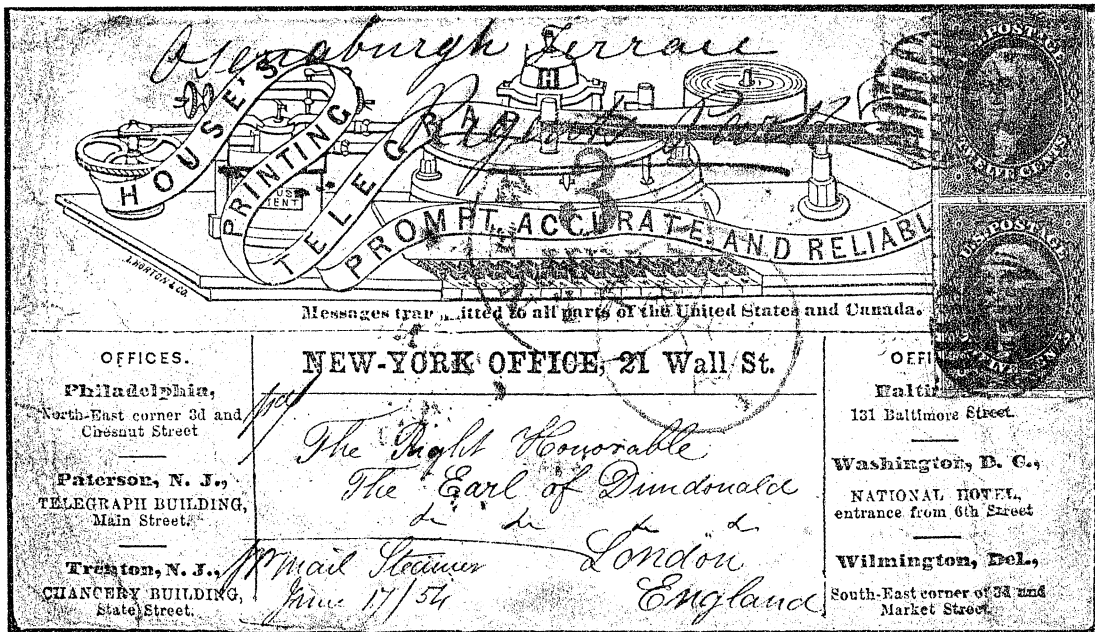 Osnaburgh Terrace
Regents Park
HOUSE'S
PRINTING
TELEGRAPH
PROMPT, ACCURATE, AND RELIABL
H
J. HORTON & CO.
U.S. POSTAGE
TWELVE CENTS
U.S. POSTAGE
3
Messages tran mitted to all parts of the United States and Canada.
OFFICES.
Philadelphia,
North-East corner 3d and
Chesnut Street
Paterson, N. J.,
TELEGRAPH BUILDING,
Main Street.
Trenton, N. J.,
CHANCERY BUILDING,
State Street.
NEW-YORK OFFICE, 21 Wall St.
pd
The Right Honorable
The Earl of Dundonald
London
England
pr mail Steamer
June 17/54
OFFI
Baltim
131 Baltimore Street.
Washington, D. C.,
NATIONAL HOTEL,
entrance from 6th Street
Wilmington, Del.,
South-East corner of 3d and
Market Street.